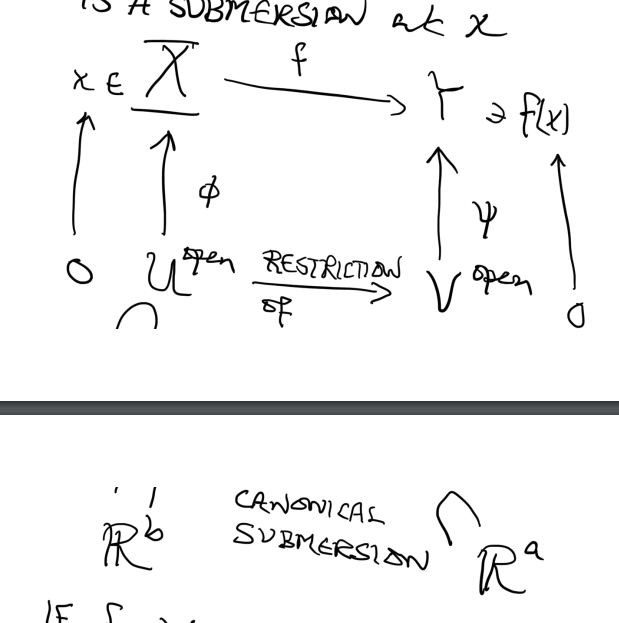 IS A SUBMERSION at x
x ∈ X f Y ∋ f(x)
φ ψ
0 U open RESTRICTION OF V open 0
ℝ^b CANONICAL SUBMERSION ℝ^a
IF f